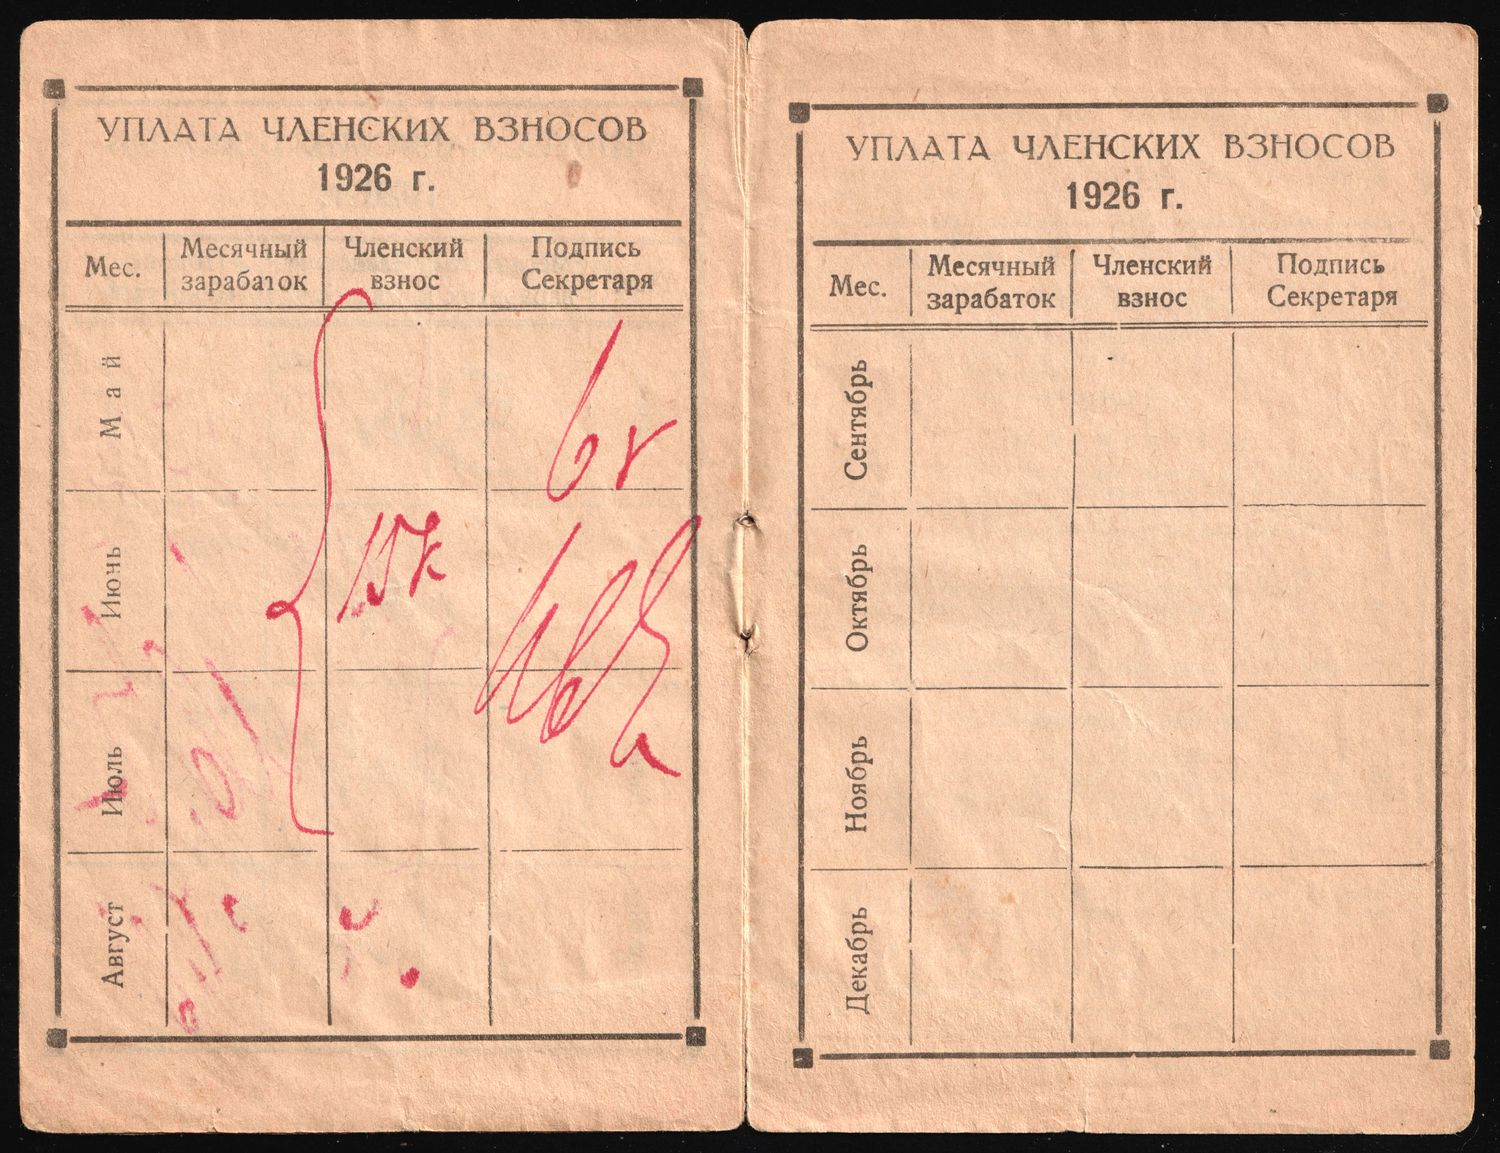 УПЛАТА ЧЛЕНСКИХ ВЗНОСОВ
1926 г.
Мес.
Месячный
зарабаток
Членский
взнос
Подпись
Секретаря
Май
Июнь
15к
Июль
Август
УПЛАТА ЧЛЕНСКИХ ВЗНОСОВ
1926 г.
Мес.
Месячный
зарабаток
Членский
взнос
Подпись
Секретаря
Сентябрь
Октябрь
Ноябрь
Декабрь